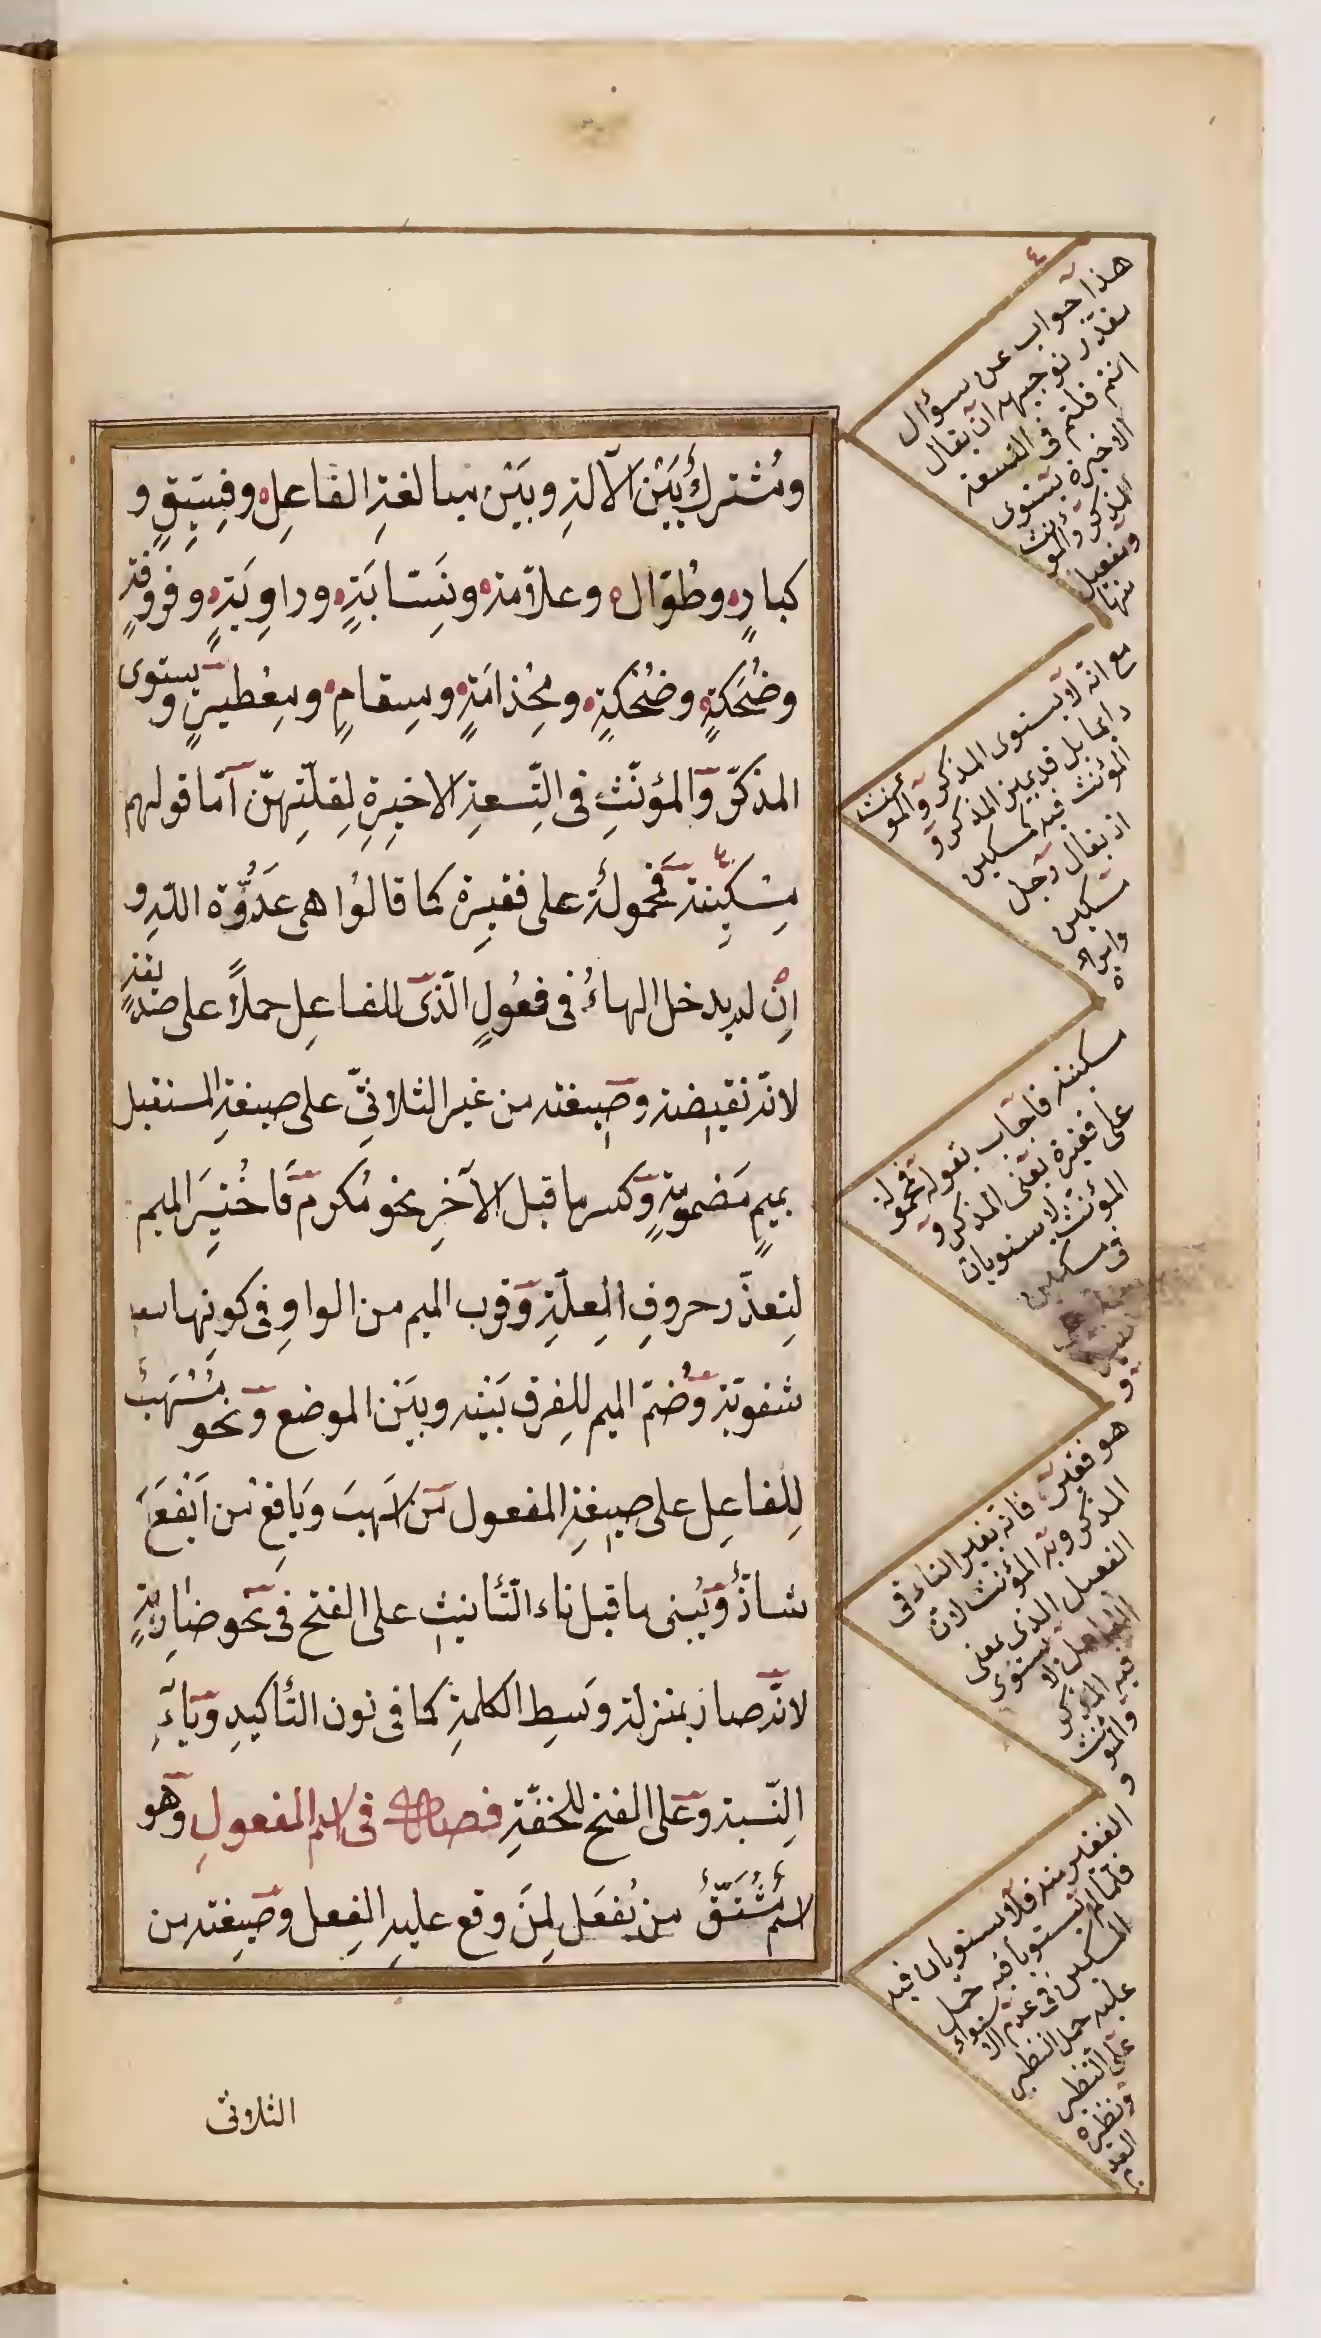 ومُشْتركٌ بَيْنَ الآلةِ وبَيْنَ مبالغةِ الفاعِلِ وفِسِّيقٍ و
كبارٍ وطُوّالٍ وعلاّمة ونَسّابَةٍ وراوِيَةٍ وفروقةٍ
وضُحَكةٍ وضُحْكةٍ ومِجْذامَةٍ ومِسقامٍ ومِعْطيرٍ ويستوى
المذكّر والمؤنّثِ فى التِّسعةِ الاخيرةِ لِقلّتِهنّ اَمّا قولهم
مِسْكِينة فمحمولةٌ على فقيرة كما قالُوا هى عَدُوَّة اللّه و
اِنْ لم يدخل الهاءُ فى فعُولٍ الّذى للفاعِل حملاً على صديقةٍ
لانّه نقيضه وصيغته من غير الثلاثىّ على صيغةِ المستقبل
بميمٍ مَضمومةٍ وكسر ما قبل الآخرِ نحو مُكرم فاختِيرَ الميم
لِتعذّر حروفِ العِلّةِ وقرب الميم من الواوِ فى كونِها
شفويّة وضُمّ الميم للفرق بَيْنه وبَيْن الموضع ونحو مُسْهَبٌ
لِلفاعِل على صيغةِ المفعول مَن اَسهبَ ويَافع مُن اَيْفَعَ
شاذٌّ ويُبنى ما قبل تاء التّأنيثِ على الفتح فى نحو ضارِبَةٍ
لانّه صار بمنزلة وَسطِ الكلمةِ كما فى نون التأكيدِ وياءِ
النِّسبة وعلى الفتح للخفّةِ فصل فى اسم المفعولِ وهو
اسم مُشْتَقٌّ من يُفعَل لِمَنْ وقع عليهِ الفِعل وصيغته من
الثلاثى
هذا جواب عن سؤال
مقدّر توجيهه ان يقال
انتم قلتم فى التسعة
الاخيرة يستوى
المذكر والمؤنث
ومفعيل
منها
مع انه لا يستوى المذكر والمؤنث
دائما بل قد يميز المذكر و
المؤنث فيه كمسكين
اذ يقال رجل
مسكين
وامراة
مسكينة فاجاب بقوله فمحمولة
على فقيرة يعنى المذكر و
المؤنث لا يستويان
فى مسكين
و
هو فقير فانه بغير التاء فى
المذكر وبه المؤنث لان
الفعيل الذى بمعنى
الفاعل لا يستوى
فيه المذكر
والمؤنث
و
الفقير منه فلا يستويان فيه
فلمّا لم يستويا فيه حمل
المسكين فى عدم الاستواء
عليه حمل النظير
على النظير
ونظيره